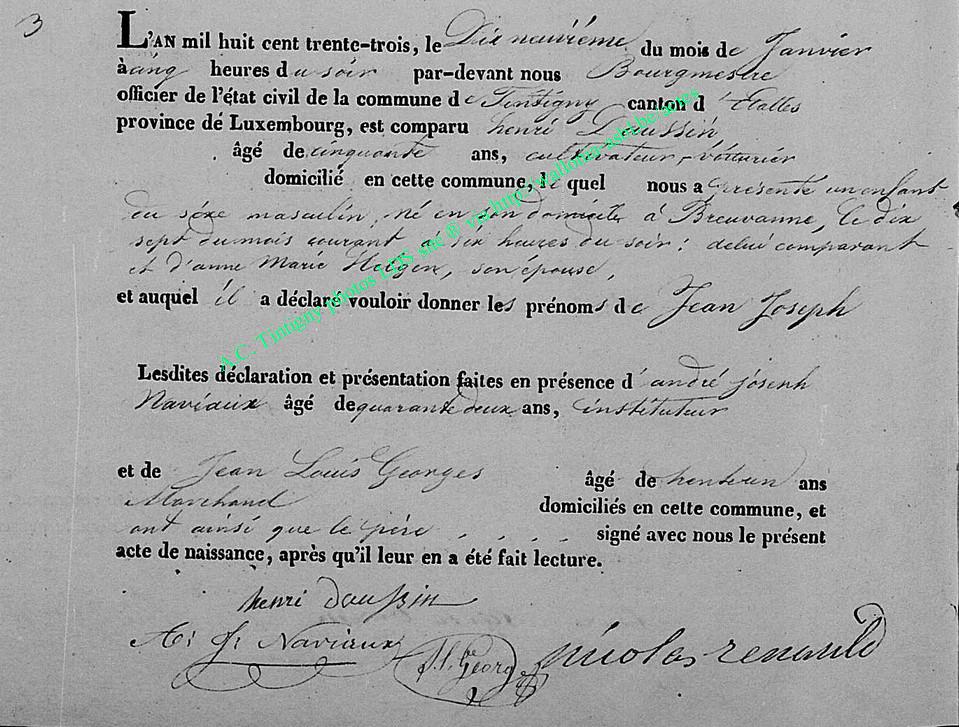 3
L'AN mil huit cent trente-trois, le Dix neuvième du mois de Janvier
à cinq heures du soir par-devant nous Bourgmestre
officier de l'état civil de la commune de Tintigny canton d'Etalles
province de Luxembourg, est comparu henri Daussin
âgé de cinquante ans, cultivateur, voiturier
domicilié en cette commune, le quel nous a présenté un enfant
du séxe masculin, né en son domicile à Breuvanne, le dix
sept du mois courant à six heures du soir; de lui comparant
et d'anne Marie son épouse,
et auquel il a déclaré vouloir donner les prénoms de Jean Joseph
Lesdites déclaration et présentation faites en présence d'andré joseph
Naviaux âgé de quarante deux ans, instituteur
et de Jean Louis Georges âgé de trente un ans
Marchand domiciliés en cette commune, et
ont ainsi que le père signé avec nous le présent
acte de naissance, après qu'il leur en a été fait lecture.
henri daussin
A: J. Naviaux J. L. George nicolas renauld
A.C. Tintigny photos LDS site ® via http://wallonia-asbl.be/actes